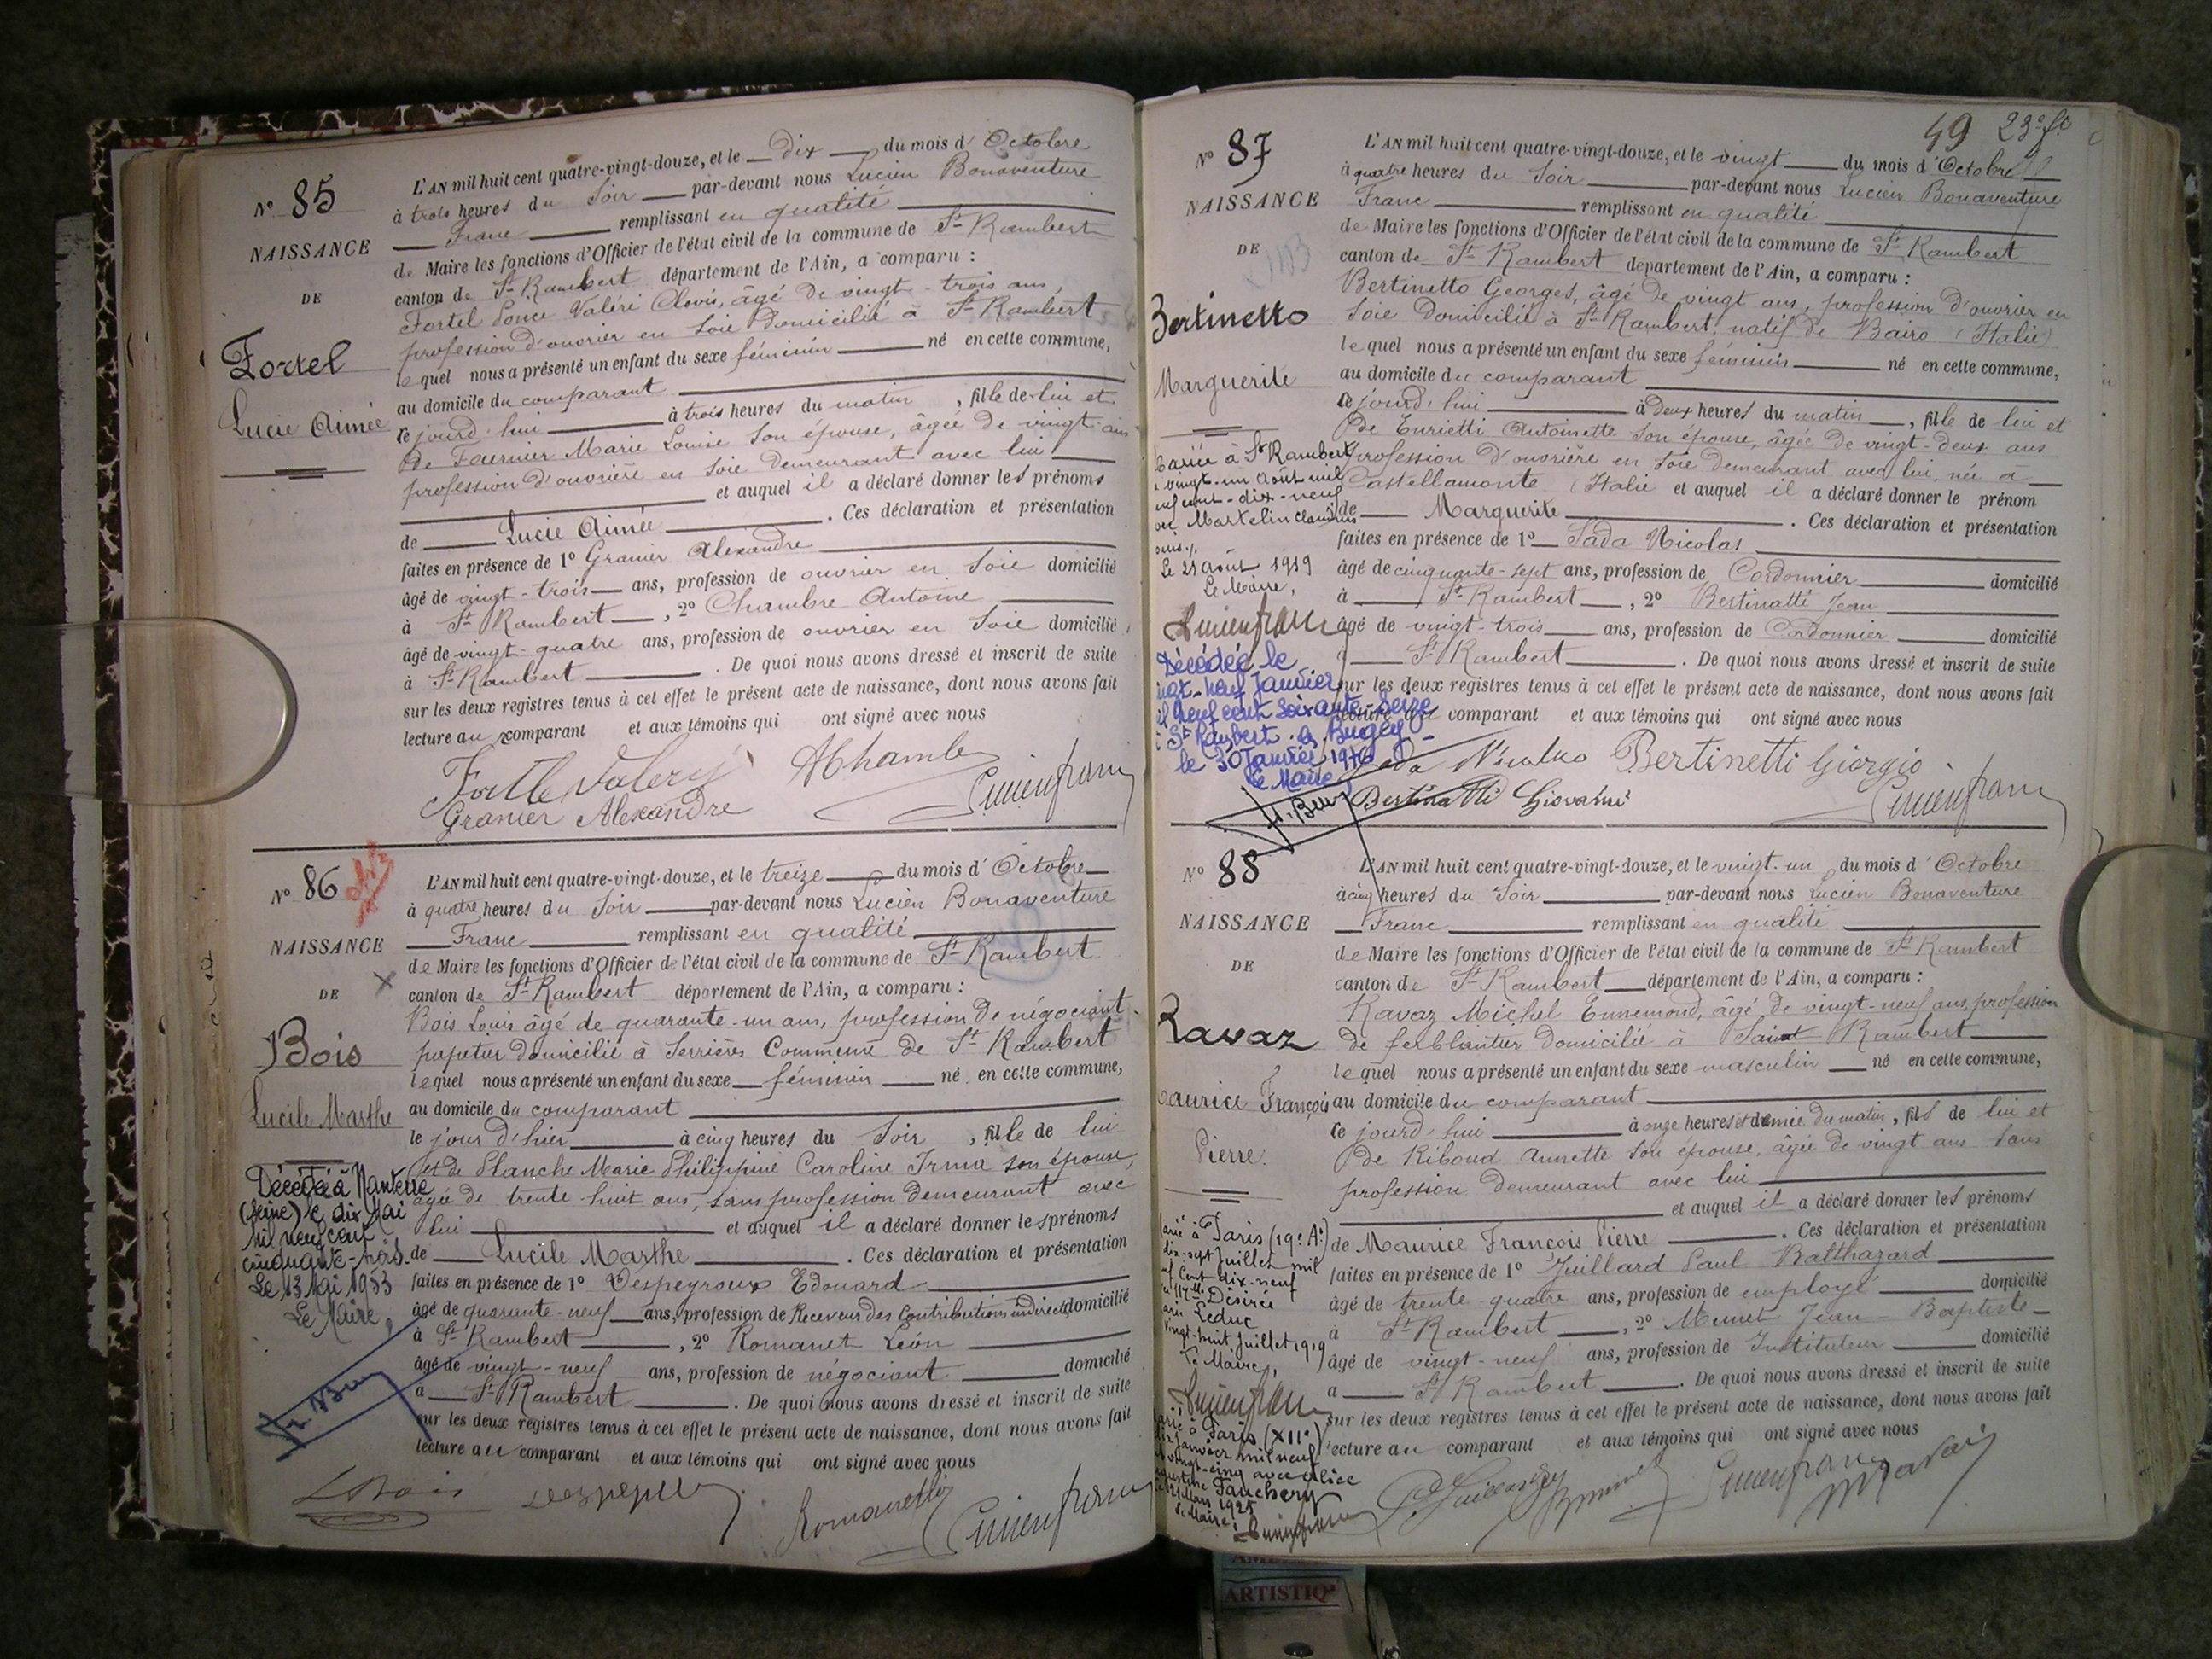 N° 85
NAISSANCE
DE
Fortel
Lucie Aimée
L'AN mil huit cent quatre-vingt-douze, et le dix du mois d'Octobre
à trois heures du soir par-devant nous Lucien Bonaventure
Franc remplissant en qualité
de Maire les fonctions d'Officier de l'état civil de la commune de St Rambert
canton de St Rambert département de l'Ain, a comparu :
Fortel Ponce Valéri Clovis, âgé de vingt-trois ans,
profession d'ouvrier en soie domicilié à St Rambert
lequel nous a présenté un enfant du sexe féminin né en cette commune,
au domicile du comparant
ce jourd'hui à trois heures du matin, fille de lui et
de Fournier Marie Louise son épouse, âgée de vingt ans
profession d'ouvrière en soie demeurant avec lui
et auquel il a déclaré donner les prénoms
de Lucie Aimée. Ces déclaration et présentation
faites en présence de 1° Granier Alexandre
âgé de vingt-trois ans, profession de ouvrier en soie domicilié
à St Rambert, 2° Chambre Antoine
âgé de vingt-quatre ans, profession de ouvrier en soie domicilié
à St Rambert. De quoi nous avons dressé et inscrit de suite
sur les deux registres tenus à cet effet le présent acte de naissance, dont nous avons fait
lecture au comparant et aux témoins qui ont signé avec nous
Granier Alexandre
N° 86
NAISSANCE
DE
Bois
Lucile Marthe
Décédée à Nanterre
(Seine) le dix Mai
mil neuf cent
cinquante-trois
Le 13 Mai 1953
Le Maire,
L'AN mil huit cent quatre-vingt-douze, et le treize du mois d'Octobre
à quatre heures du soir par-devant nous Lucien Bonaventure
Franc remplissant en qualité
de Maire les fonctions d'Officier de l'état civil de la commune de St Rambert
canton de St Rambert département de l'Ain, a comparu :
Bois Louis âgé de quarante-un ans, profession de négociant
papetier domicilié à Serrières Commune de St Rambert
lequel nous a présenté un enfant du sexe féminin né en cette commune,
au domicile du comparant
le jour d'hier à cinq heures du soir, fille de lui
et de Planche Marie Philippine Caroline Irma son épouse,
âgée de trente huit ans, sans profession demeurant avec
lui et auquel il a déclaré donner les prénoms
de Lucile Marthe. Ces déclaration et présentation
faites en présence de 1° Despeyroux Edouard
âgé de quarante-neuf ans, profession de Receveur des Contributions indirectes domicilié
à St Rambert, 2° Romanet Léon
âgé de vingt-neuf ans, profession de négociant domicilié
à St Rambert. De quoi nous avons dressé et inscrit de suite
sur les deux registres tenus à cet effet le présent acte de naissance, dont nous avons fait
lecture au comparant et aux témoins qui ont signé avec nous
LBois
49 23e fo
N° 87
NAISSANCE
DE
Bertinetto
Marguerite
Mariée à St Rambert
vingt-un août mil
neuf cent-dix-neuf
avec Martelin Claudius
Le 21 août 1919
Le Maire,
Décédée le
vingt-neuf Janvier
mil neuf cent soixante seize
à St Rambert-en-Bugey
le 30 Janvier 1976
Le Maire
L'AN mil huit cent quatre-vingt-douze, et le vingt du mois d'Octobre
à quatre heures du soir par-devant nous Lucien Bonaventure
Franc remplissant en qualité
de Maire les fonctions d'Officier de l'état civil de la commune de St Rambert
canton de St Rambert département de l'Ain, a comparu :
Bertinetto Georges, âgé de vingt ans, profession d'ouvrier en
soie domicilié à St Rambert, natif de Bairo (Italie)
lequel nous a présenté un enfant du sexe féminin né en cette commune,
au domicile du comparant
ce jourd'hui à deux heures du matin, fille de lui et
de Enrietti Antoinette son épouse, âgée de vingt-deux ans
profession d'ouvrière en soie demeurant avec lui, née à
Castellamonte (Italie et auquel il a déclaré donner le prénom
de Marguerite. Ces déclaration et présentation
faites en présence de 1° Sada Nicolas
âgé de cinquante-sept ans, profession de Cordonnier domicilié
à St Rambert, 2° Bertinatti Jean
âgé de vingt-trois ans, profession de Cordonnier domicilié
à St Rambert. De quoi nous avons dressé et inscrit de suite
sur les deux registres tenus à cet effet le présent acte de naissance, dont nous avons fait
lecture au comparant et aux témoins qui ont signé avec nous
Bertinetti Giorgio
Bertinatti Giovanni
N° 88
NAISSANCE
DE
Ravaz
Maurice François
Pierre
Marié à Paris (19e Ar)
dix-sept juillet mil
neuf cent dix-neuf
Désirée
Leduc
vingt-huit juillet 1919
Le Maire,
Paris (XIIe)
janvier mil neuf
vingt-cinq avec Alice
Fauchery
Mars 1925
Le Maire,
L'AN mil huit cent quatre-vingt-douze, et le vingt-un du mois d'Octobre
à cinq heures du soir par-devant nous Lucien Bonaventure
Franc remplissant en qualité
de Maire les fonctions d'Officier de l'état civil de la commune de St Rambert
canton de St Rambert département de l'Ain, a comparu :
Ravaz Michel Ennemond, âgé de vingt-neuf ans, profession
de ferblantier domicilié à Saint Rambert
lequel nous a présenté un enfant du sexe masculin né en cette commune,
au domicile du comparant
ce jourd'hui à onze heures et demie du matin, fils de lui et
de Riboud Annette son épouse, âgée de vingt ans sans
profession demeurant avec lui
et auquel il a déclaré donner les prénoms
de Maurice François Pierre. Ces déclaration et présentation
faites en présence de 1° Juillard Paul Balthazard
âgé de trente-quatre ans, profession de employé domicilié
à St Rambert, 2° Munet Jean-Baptiste
âgé de vingt-neuf ans, profession de Instituteur domicilié
à St Rambert. De quoi nous avons dressé et inscrit de suite
sur les deux registres tenus à cet effet le présent acte de naissance, dont nous avons fait
lecture au comparant et aux témoins qui ont signé avec nous
ARTISTIQ